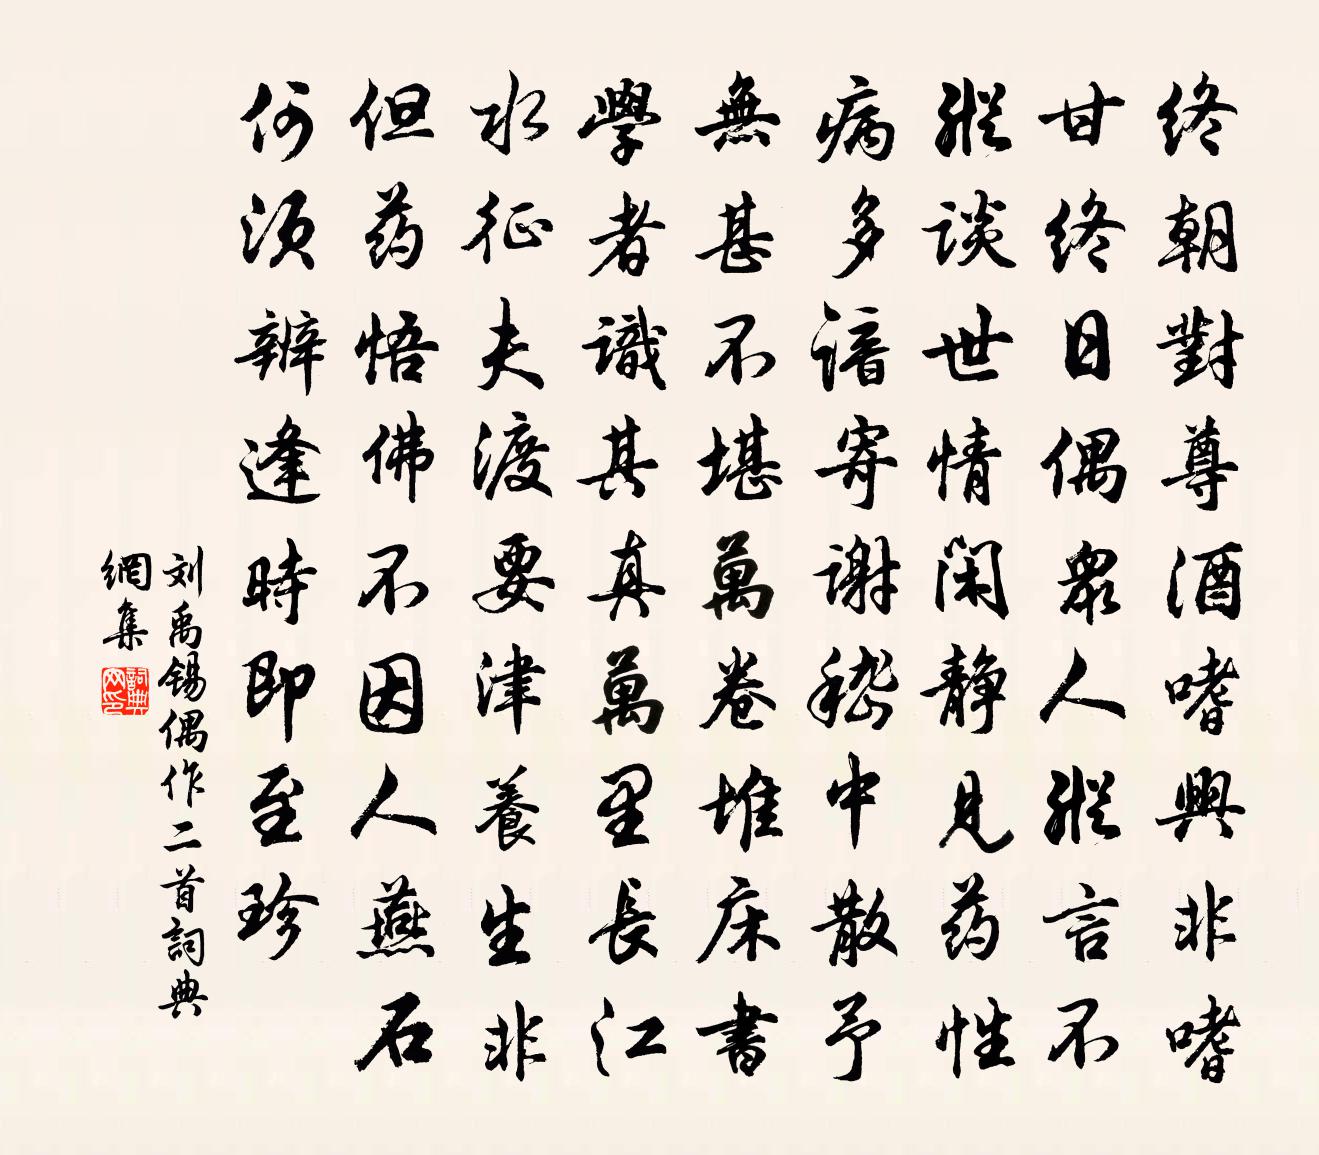 终朝對尊酒嗜興非嗜
甘终日偶衆人縱言不
縱谈世情闲静見药性
病多諳寄谢嵇中散予
無甚不堪萬卷堆床書
學者識其真萬里長江
水征夫渡要津養生非
但药悟佛不因人燕石
何须辨逢時即至珍
刘禹锡偶作二首詞典
網集
詞典